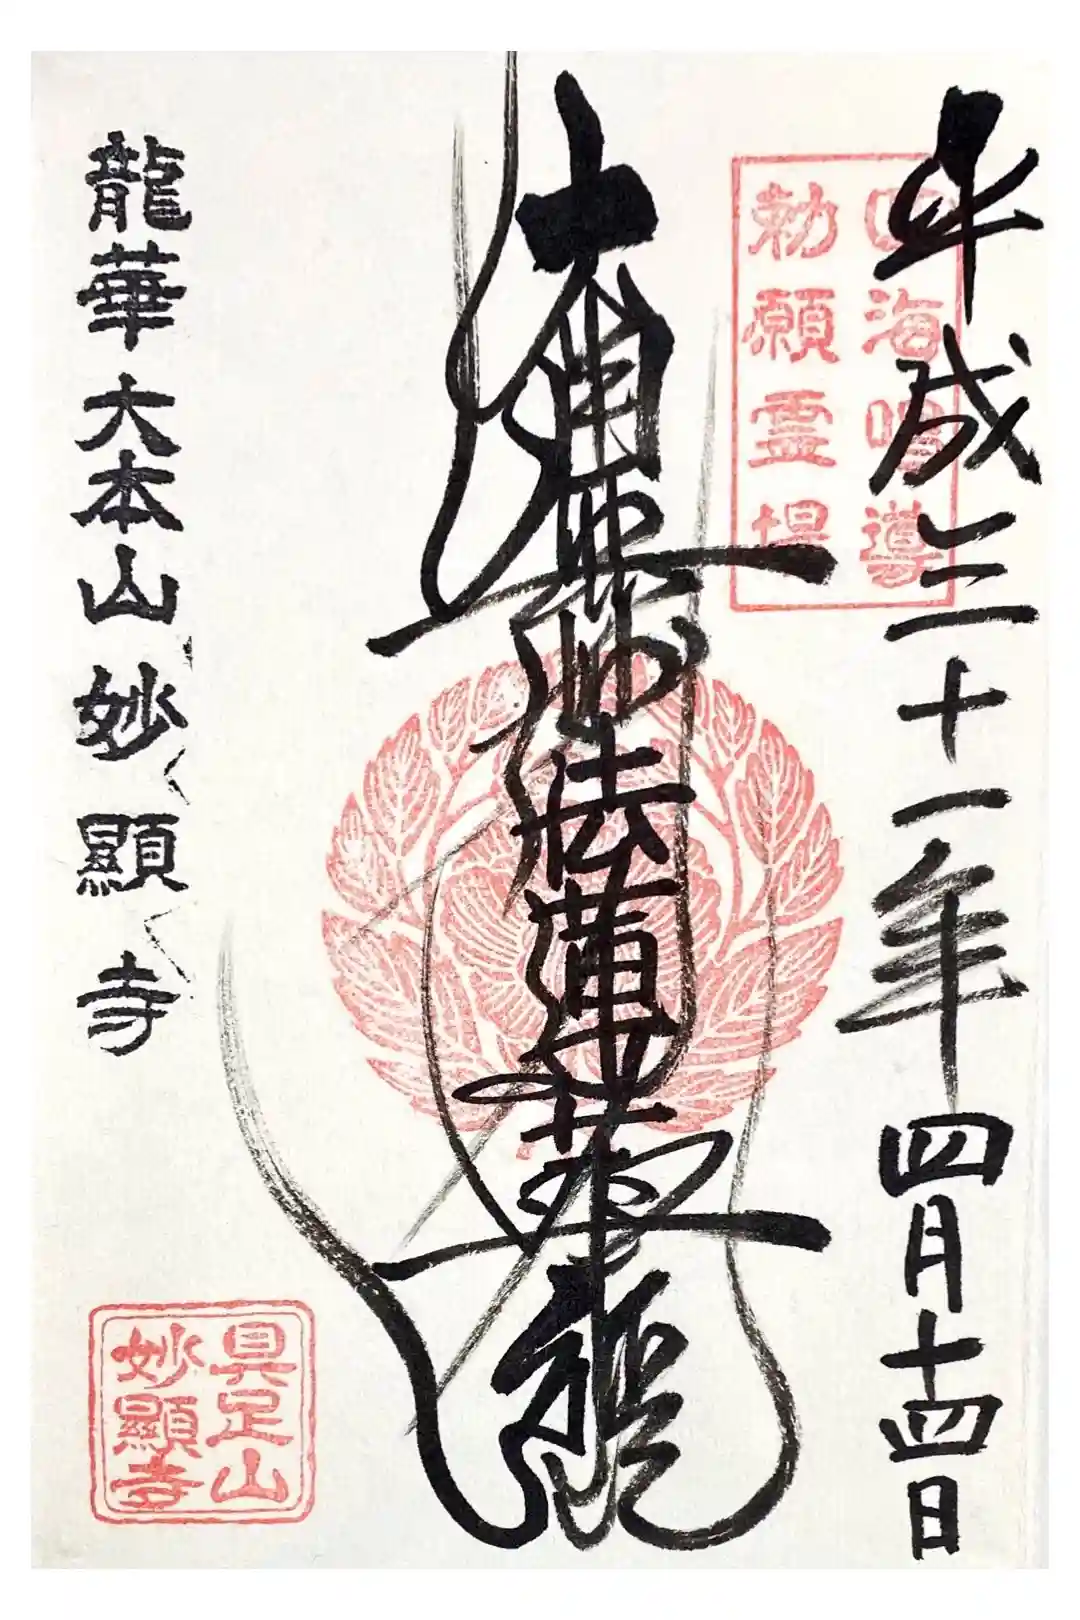 平成三十一年四月十四日
四海唱導
勅願霊場
南無妙法蓮華経
龍華 大本山 妙顯寺
具足山
妙顯寺